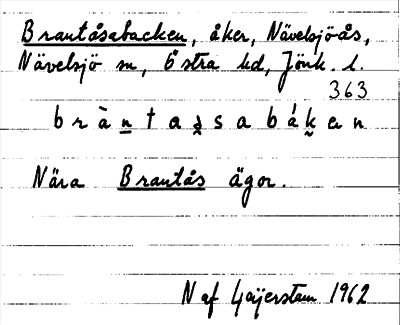 Brantåsabacken, åker, Nävelsjöås,
Nävelsjö sn, Östra hd, Jönk. l.
363
bràntasabákan
Nära Brantås ägor.
N af Geijerstam 1962